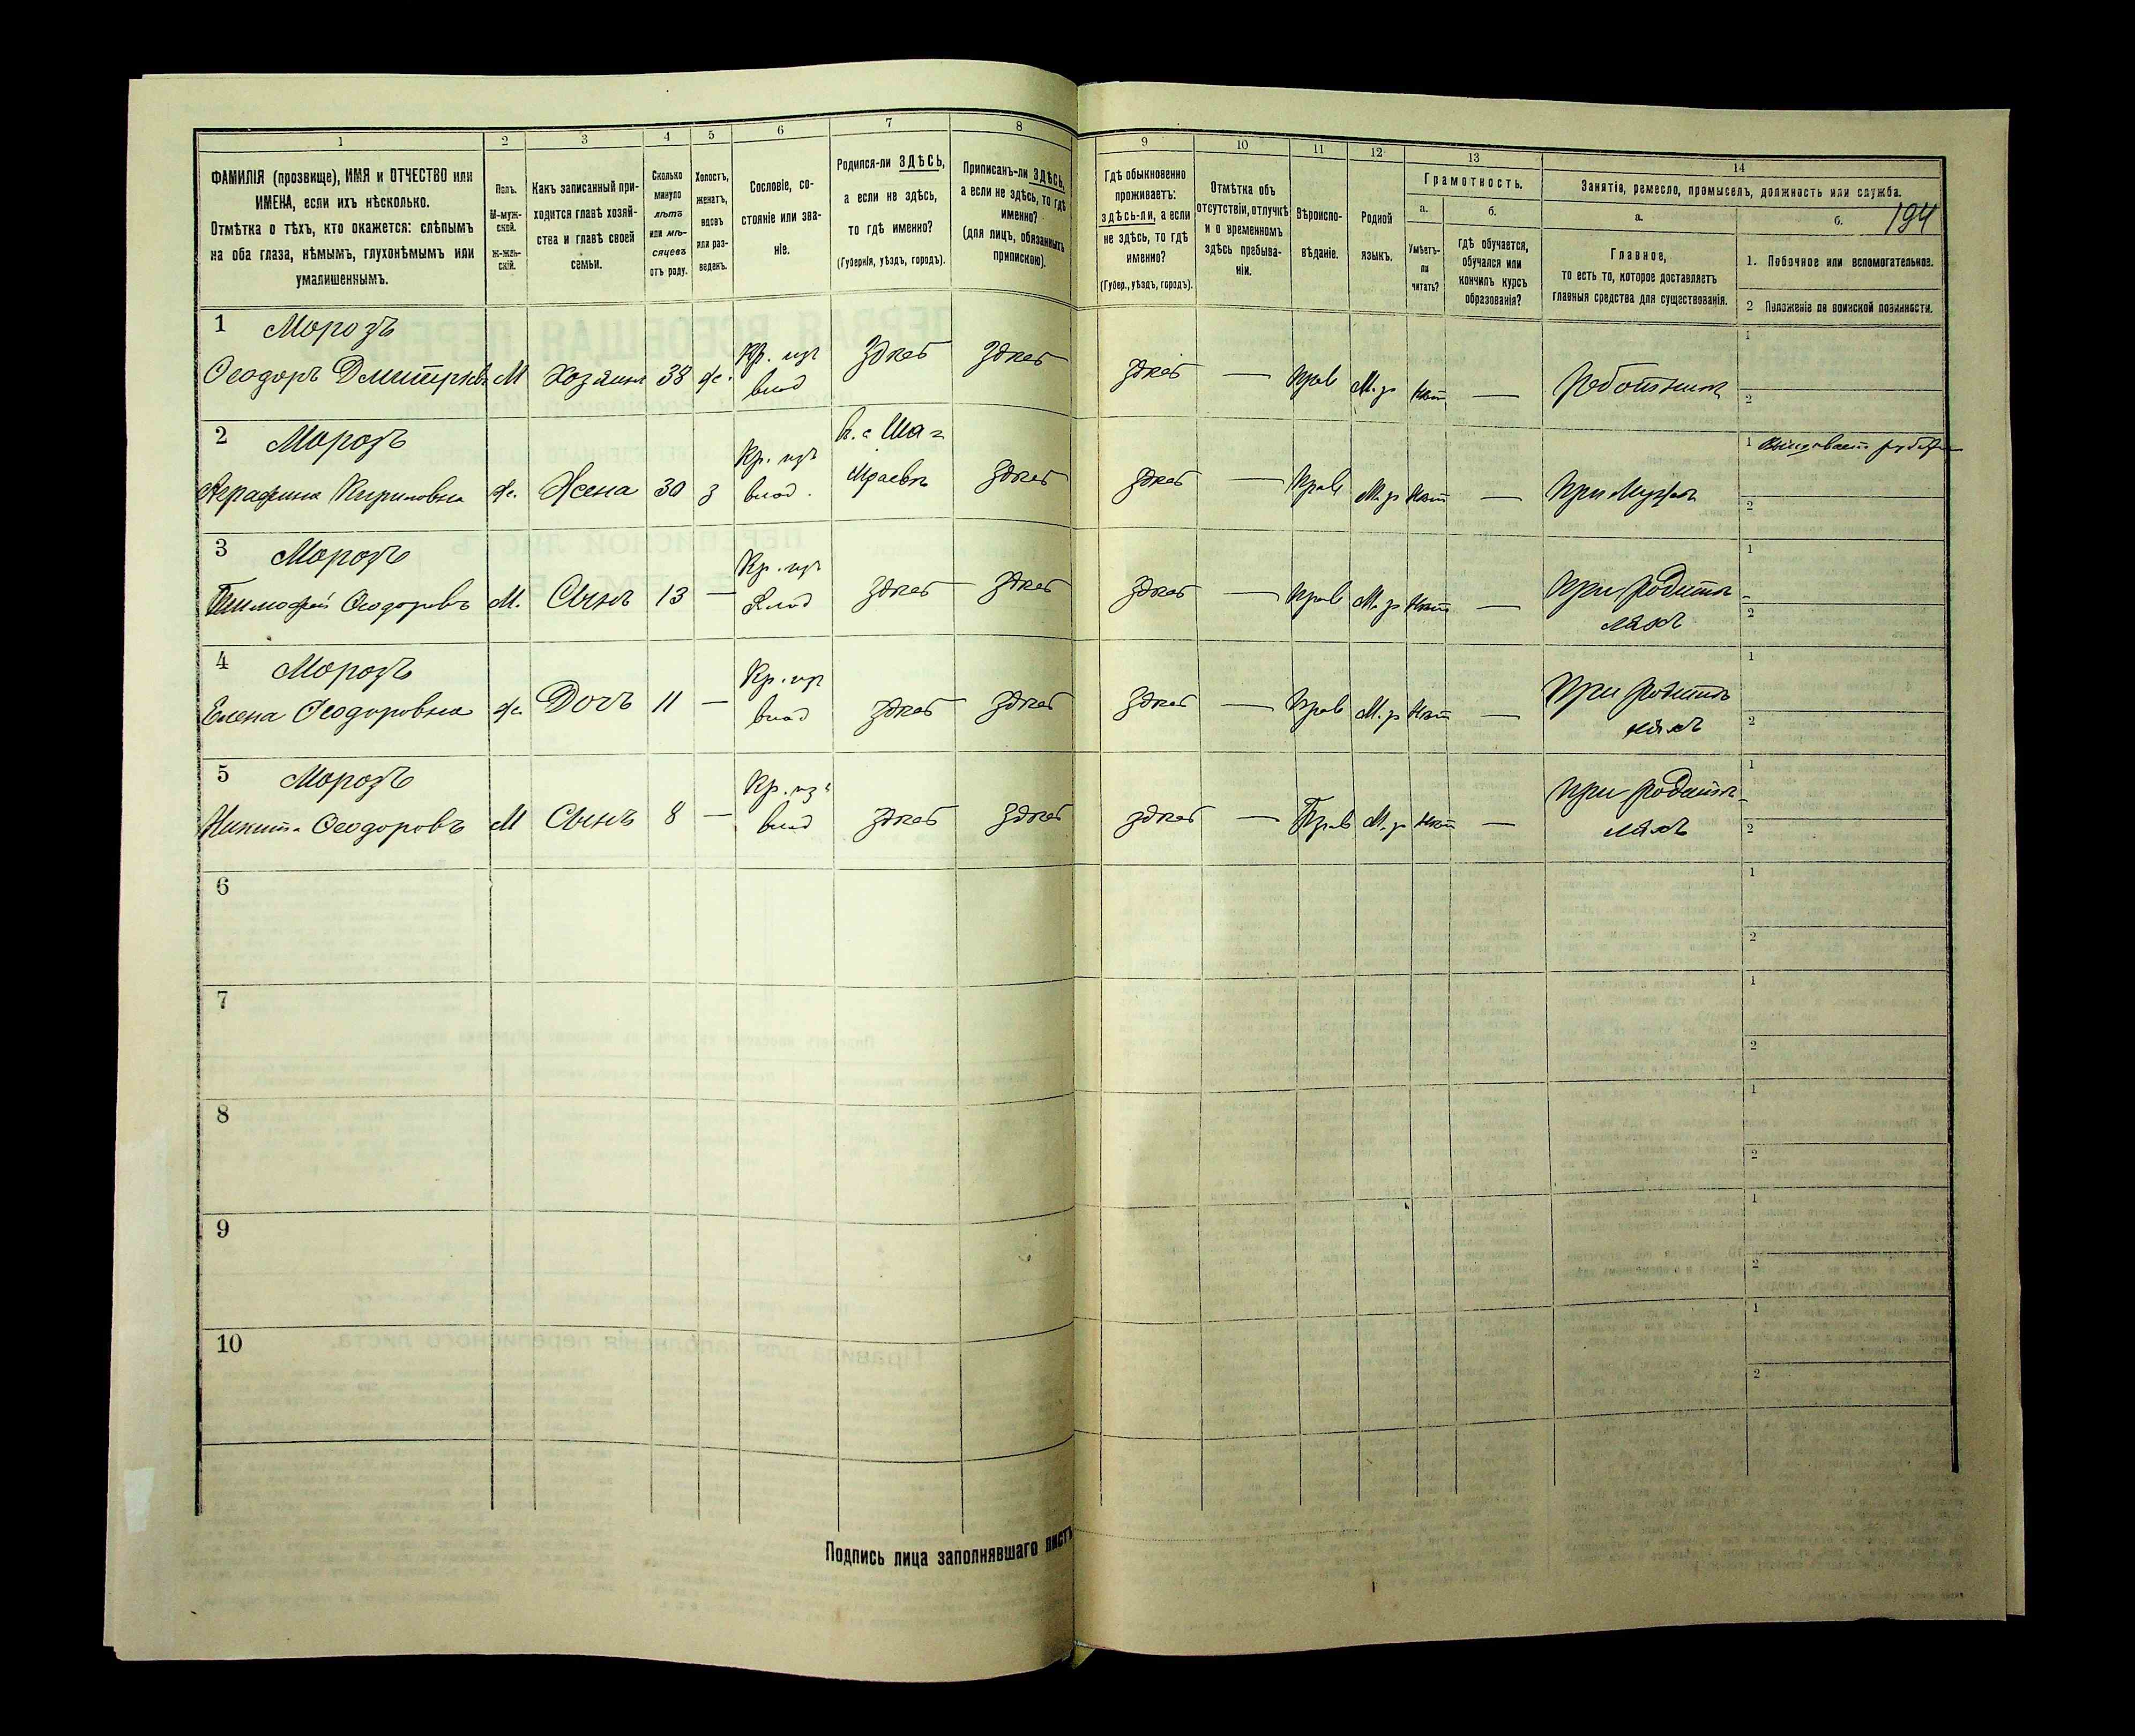 1 2 3 4 5 6 7 8 9 10 11 12 13 14
ФАМИЛІЯ (прозвище), ИМЯ и ОТЧЕСТВО или
ИМЕНА, если ихъ нѣсколько.
Отмѣтка о тѣхъ, кто окажется: слѣпымъ
на оба глаза, нѣмымъ, глухонѣмымъ или
умалишеннымъ.
Полъ.
М-муж-
ской.
Ж-жен-
скій.
Какъ записанный при-
ходится главѣ хозяй-
ства и главѣ своей
семьи.
Сколько
минуло
лѣтъ
или мѣ-
сяцевъ
отъ роду.
Холостъ,
женатъ,
вдовъ
или раз-
веденъ.
Сословіе, со-
стояніе или зва-
ніе.
Родился-ли ЗДѢСЬ,
а если не здѣсь,
то гдѣ именно?
(Губернія, уѣздъ, городъ).
Приписанъ-ли ЗДѢСЬ,
а если не здѣсь, то гдѣ
именно?
(для лицъ, обязанныхъ
припискою).
Гдѣ обыкновенно
проживаетъ:
здѣсь-ли, а если
не здѣсь, то гдѣ
именно?
(Губер., уѣздъ, городъ).
Отмѣтка объ
отсутствіи, отлучкѣ
и о временномъ
здѣсь пребыва-
ніи.
Вѣроиспо-
вѣданіе.
Родной
языкъ.
Грамотность.
а.
Умѣетъ-
ли
читать?
б.
гдѣ обучается,
обучался или
кончилъ курсъ
образованія?
Занятіе, ремесло, промыселъ, должность или служба.
а.
Главное,
то есть то, которое доставляетъ
главныя средства для существованія.
б.
194
1. Побочное или вспомогательное.
2 Положеніе по воинской повинности.
1 Морозъ
Ѳеодоръ Дмитріевъ М Хозяинъ 38 ж. Кр. изъ влад здѣсь здѣсь здѣсь — Прав М.р Нѣт — Работникъ
1
2
2 Морозъ
Кириловна ж. Жена 30 з Кр. изъ влад. здѣсь здѣсь — Прав М.р Нѣт — При Мужѣ
1
2
3 Морозъ
Тимофей Ѳеодоровъ М. Сынъ 13 — Кр. изъ влад здѣсь здѣсь здѣсь — Прав М.р Нѣт — При родите-
ляхъ
1
2
4 Морозъ
Елена Ѳеодоровна ж Дочь 11 — Кр. из влад здѣсь здѣсь здѣсь — Прав М.р Нѣт — При родите
ляхъ
1
2
5 Морозъ
Никита Ѳеодоровъ М Сынъ 8 — Кр. изъ влад здѣсь здѣсь здѣсь — Прав М.р Нѣт — При родите-
ляхъ
1
2
6
1
2
7
1
2
8
1
2
9
1
2
10
1
2
Подпись лица заполнявшаго листъ